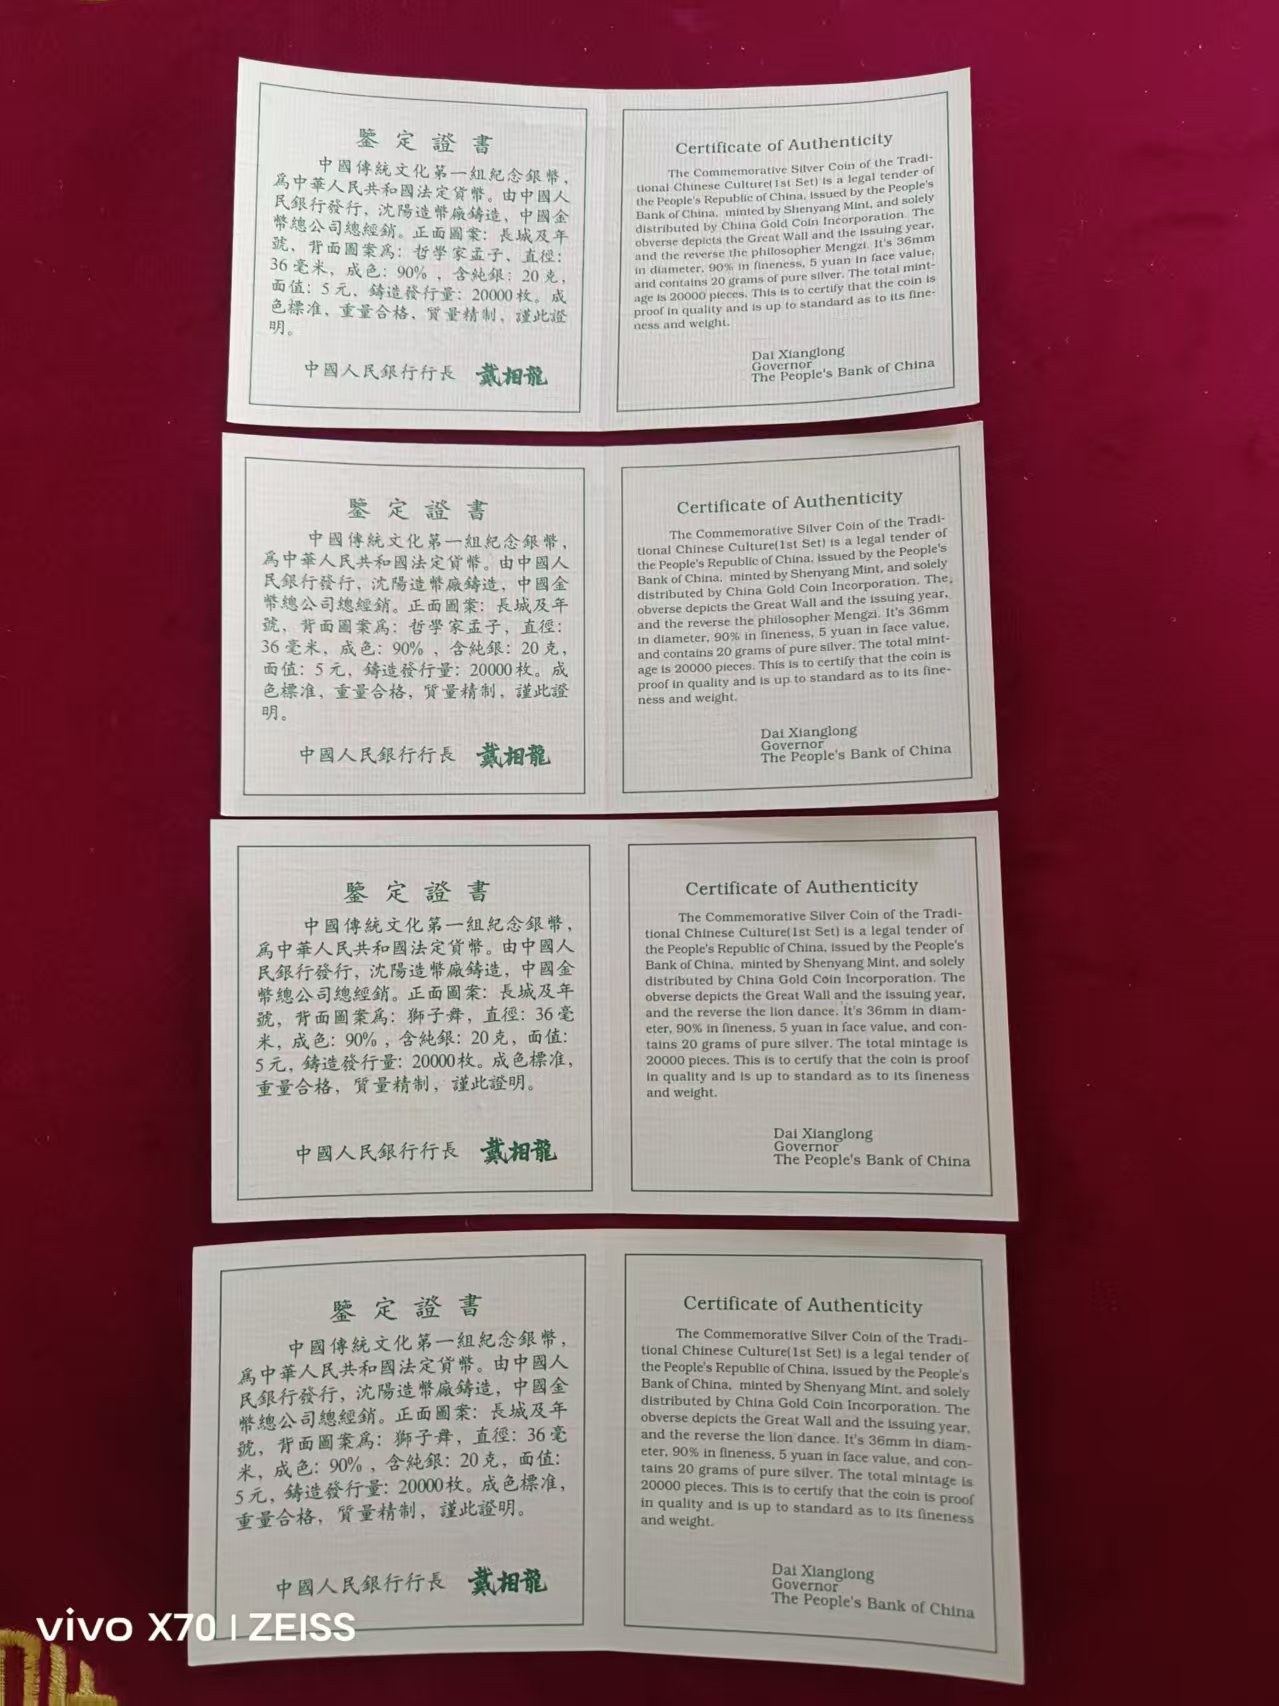 鑒定證書
中國傳統文化第一組紀念銀幣,
爲中華人民共和國法定貨幣。由中國人
民銀行發行, 沈陽造幣廠鑄造, 中國金
幣總公司總經銷。正面圖案: 長城及年
號、背面圖案爲: 哲學家孟子、直徑:
36毫米, 成色: 90% , 含純銀: 20克,
面值: 5元、鑄造發行量: 20000枚。成
色標准, 重量合格, 質量精制, 謹此證
明。
中國人民銀行行長 戴相龍
Certificate of Authenticity
The Commemorative Silver Coin of the Tradi-
tional Chinese Culture(1st Set) is a legal tender of
the People's Republic of China, issued by the People's
Bank of China, minted by Shenyang Mint, and solely
distributed by China Gold Coin Incorporation. The
obverse depicts the Great Wall and the issuing year,
and the reverse the philosopher Mengzi. It's 36mm
in diameter, 90% in fineness, 5 yuan in face value,
and contains 20 grams of pure silver. The total mint-
age is 20000 pieces. This is to certify that the coin is
proof in quality and is up to standard as to its fine-
ness and weight.
Dai Xianglong
Governor
The People's Bank of China
鑒定證書
中國傳統文化第一組紀念銀幣,
爲中華人民共和國法定貨幣。由中國人
民銀行發行, 沈陽造幣廠鑄造, 中國金
幣總公司總經銷。正面圖案: 長城及年
號、背面圖案爲: 哲學家孟子, 直徑:
36毫米, 成色: 90% , 含純銀: 20克,
面值: 5元, 鑄造發行量: 20000枚。成
色標准, 重量合格, 質量精制, 謹此證
明。
中國人民銀行行長 戴相龍
Certificate of Authenticity
The Commemorative Silver Coin of the Tradi-
tional Chinese Culture(1st Set) is a legal tender of
the People's Republic of China, issued by the People's
Bank of China, minted by Shenyang Mint, and solely
distributed by China Gold Coin Incorporation. The
obverse depicts the Great Wall and the issuing year,
and the reverse the philosopher Mengzi. It's 36mm
in diameter, 90% in fineness, 5 yuan in face value,
and contains 20 grams of pure silver. The total mint-
age is 20000 pieces. This is to certify that the coin is
proof in quality and is up to standard as to its fine-
ness and weight.
Dai Xianglong
Governor
The People's Bank of China
鑒定證書
中國傳統文化第一組紀念銀幣,
爲中華人民共和國法定貨幣。由中國人
民銀行發行, 沈陽造幣廠鑄造, 中國金
幣總公司總經銷。正面圖案: 長城及年
號, 背面圖案爲: 獅子舞, 直徑: 36毫
米, 成色: 90% , 含純銀: 20克, 面值:
5元, 鑄造發行量: 20000枚。成色標准,
重量合格, 質量精制, 謹此證明。
中國人民銀行行長 戴相龍
Certificate of Authenticity
The Commemorative Silver Coin of the Tradi-
tional Chinese Culture(1st Set) is a legal tender of
the People's Republic of China, issued by the People's
Bank of China, minted by Shenyang Mint, and solely
distributed by China Gold Coin Incorporation. The
obverse depicts the Great Wall and the issuing year,
and the reverse the lion dance. It's 36mm in diam-
eter, 90% in fineness, 5 yuan in face value, and con-
tains 20 grams of pure silver. The total mintage is
20000 pieces. This is to certify that the coin is proof
in quality and is up to standard as to its fineness
and weight.
Dai Xianglong
Governor
The People's Bank of China
鑒定證書
中國傳統文化第一組紀念銀幣,
爲中華人民共和國法定貨幣。由中國人
民銀行發行, 沈陽造幣廠鑄造, 中國金
幣總公司總經銷。正面圖案: 長城及年
號, 背面圖案爲: 獅子舞, 直徑: 36毫
米, 成色: 90% , 含純銀: 20克, 面值:
5元, 鑄造發行量: 20000枚。成色標准,
重量合格, 質量精制, 謹此證明。
中國人民銀行行長 戴相龍
Certificate of Authenticity
The Commemorative Silver Coin of the Tradi-
tional Chinese Culture(1st Set) is a legal tender of
the People's Republic of China, issued by the People's
Bank of China, minted by Shenyang Mint, and solely
distributed by China Gold Coin Incorporation. The
obverse depicts the Great Wall and the issuing year,
and the reverse the lion dance. It's 36mm in diam-
eter, 90% in fineness, 5 yuan in face value, and con-
tains 20 grams of pure silver. The total mintage is
20000 pieces. This is to certify that the coin is proof
in quality and is up to standard as to its fineness
and weight.
Dai Xianglong
Governor
The People's Bank of China
vivo X70 | ZEISS